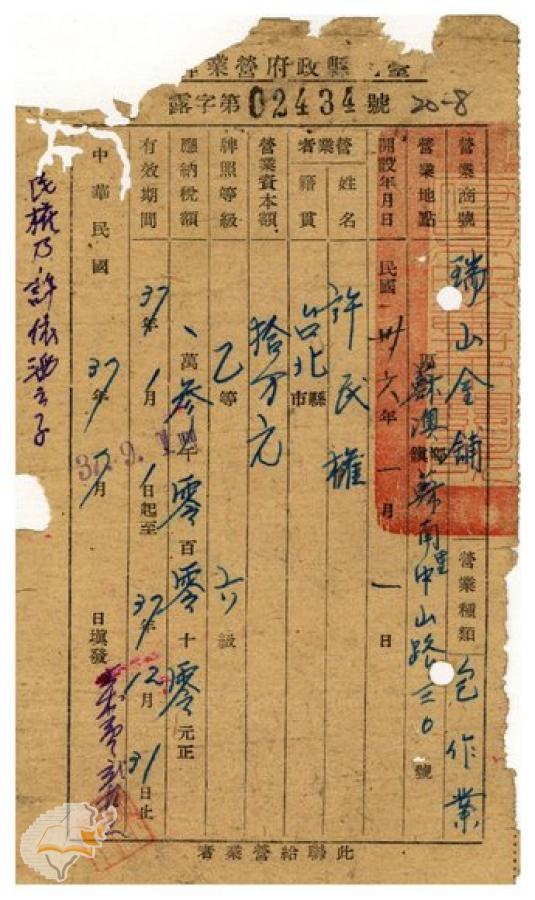 業營府政縣
露字第02434號
20-8
營業商號 瑞山金舖 營業種類 包作業
營業地點 區鄉鎮 蘇澳 蘇南里中山路三〇號
開設年月日 民國卅六年一月一日
營業者 姓名 許民權
籍貫 台北縣市
營業資本額 拾万元
牌照等級 乙等 六級
應納稅額 萬參千零百零十零元正
有效期間 37年1月1日起至37年12月31日止
中華民國 37年 月 日塡發
民權乃許依 之子
此聯給營業者